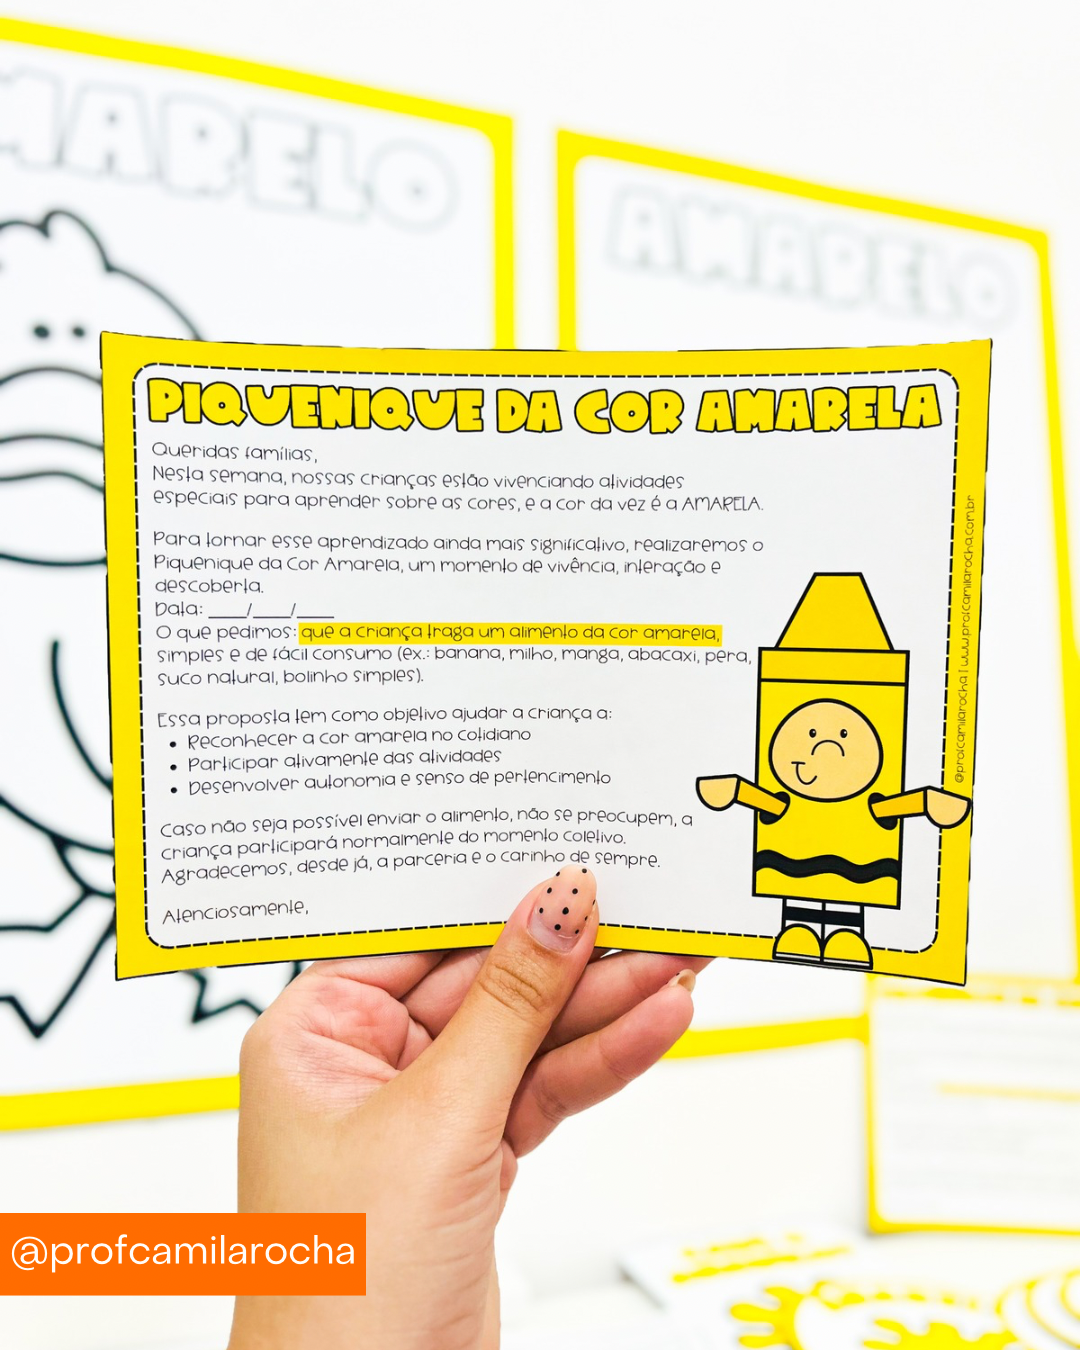 MARELO
AMARELO
PIQUENIQUE DA COR AMARELA
Queridas famílias,
Nesta semana, nossas crianças estão vivenciando atividades
especiais para aprender sobre as cores, e a cor da vez é a AMARELA.
Para tornar esse aprendizado ainda mais significativo, realizaremos o
Piquenique da Cor Amarela, um momento de vivência, interação e
descoberta.
Data: ___/___/___
O que pedimos: que a criança traga um alimento da cor amarela,
simples e de fácil consumo (ex.: banana, milho, manga, abacaxi, pera,
suco natural, bolinho simples).
Essa proposta tem como objetivo ajudar a criança a:
• Reconhecer a cor amarela no cotidiano
• Participar ativamente das atividades
• Desenvolver autonomia e senso de pertencimento
Caso não seja possível enviar o alimento, não se preocupem, a
criança participará normalmente do momento coletivo.
Agradecemos, desde já, a parceria e o carinho de sempre.
Atenciosamente,
@profcamilarocha | www.profcamilarocha.com.br
@profcamilarocha